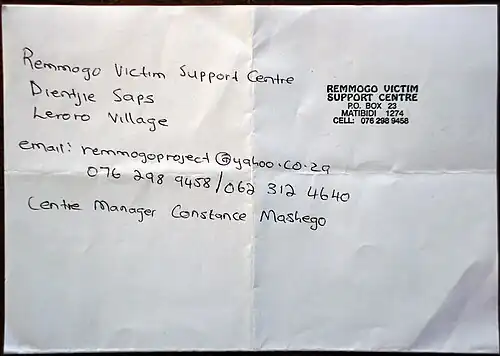 Remmogo Victim Support Centre
Dientjie Saps
Leroro Village
email: remmogoproject@yahoo.co.za
076 298 9458/062 312 4640
Centre Manager Constance Mashego
REMMOGO VICTIM
SUPPORT CENTRE
P.O. BOX 23
MATIBIDI 1274
CELL: 076 298 9458